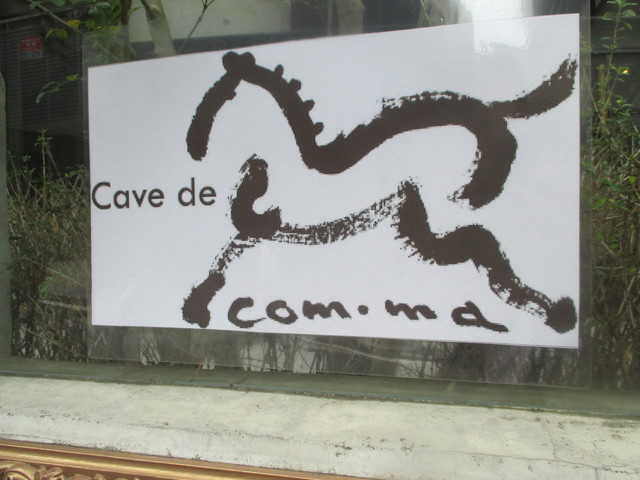 Cave de
com・ma